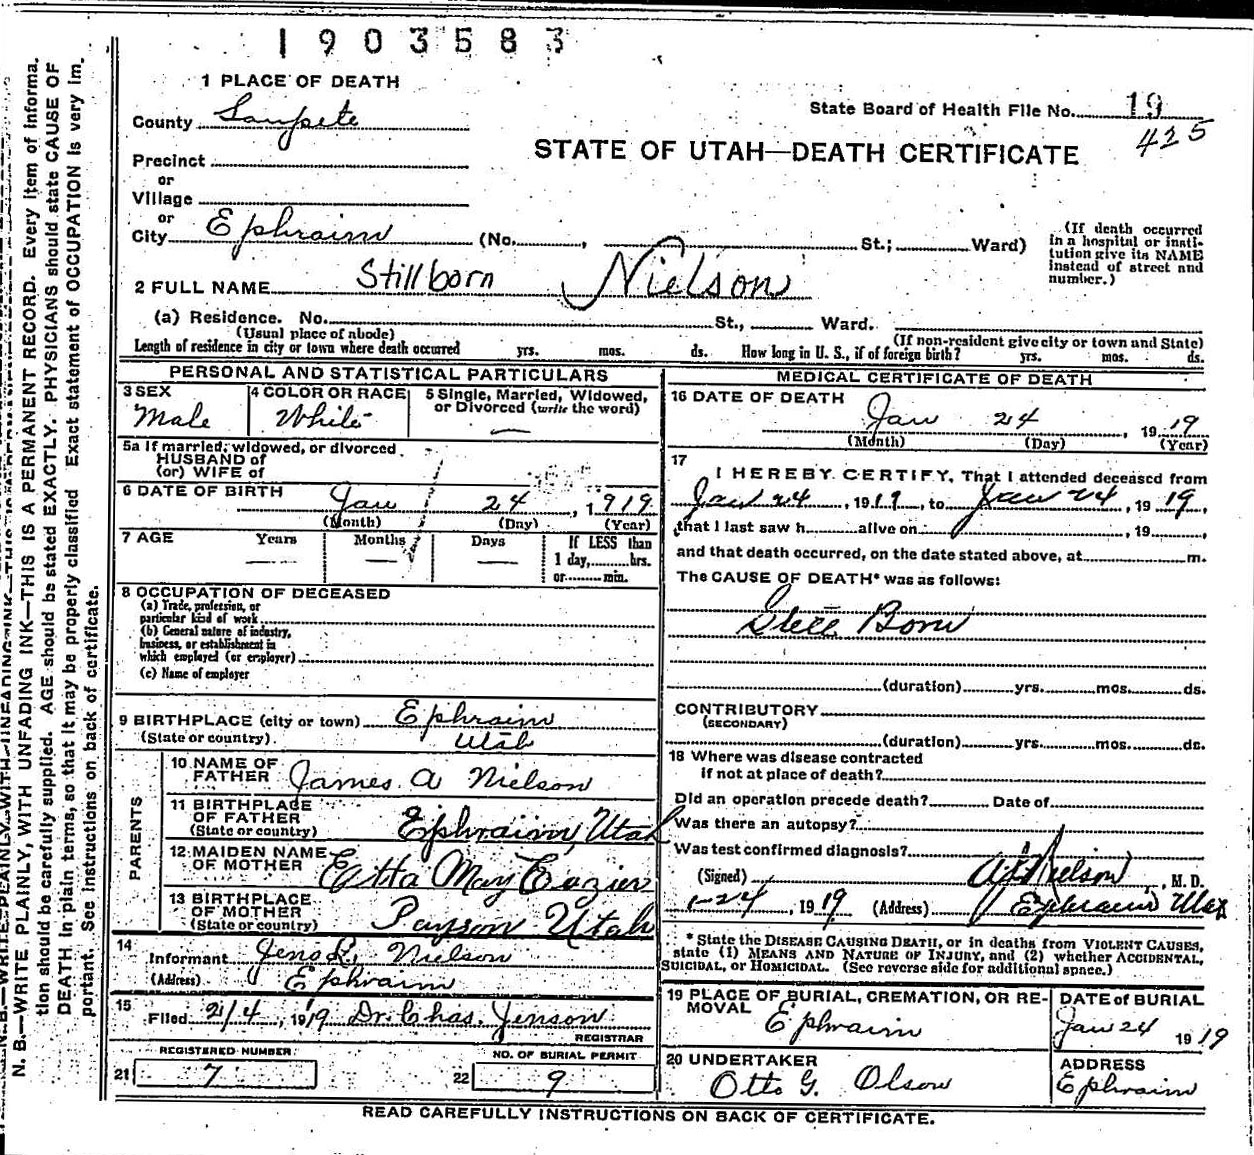 1903583
1 PLACE OF DEATH
State Board of Health File No. 19
425
County Sanpete
STATE OF UTAH—DEATH CERTIFICATE
Precinct
or
Village
or
City Ephraim (No. , St.; Ward)
(If death occurred in a hospital or insti-
tution give its NAME instead of street and number.)
2 FULL NAME Stillborn Nielson
(a) Residence. No. St., Ward.
(Usual place of abode) (If non-resident give city or town and State)
Length of residence in city or town where death occurred yrs. mos. ds. How long in U. S., if of foreign birth? yrs. mos. ds.
PERSONAL AND STATISTICAL PARTICULARS
3 SEX
Male
4 COLOR OR RACE
White
5 Single, Married, Widowed,
or Divorced (write the word)
—
5a If married, widowed, or divorced
HUSBAND of
(or) WIFE of
6 DATE OF BIRTH Jan 24, 1919
(Month) (Day) (Year)
7 AGE Years Months Days If LESS than
— — — 1 day, hrs.
or min.
8 OCCUPATION OF DECEASED
(a) Trade, profession, or
particular kind of work
(b) General nature of industry,
business, or establishment in
which employed (or employer)
(c) Name of employer
9 BIRTHPLACE (city or town) Ephraim
(State or country) Utah
PARENTS
10 NAME OF
FATHER James A Nielson
11 BIRTHPLACE
OF FATHER
(State or country) Ephraim, Utah
12 MAIDEN NAME
OF MOTHER Etta May Cozier
13 BIRTHPLACE
OF MOTHER
(State or country) Payson Utah
14
Informant Jens R. Nielson
(Address) Ephraim
15
Filed 2/4, 1919 Dr. Chas. Jenson
REGISTRAR
REGISTERED NUMBER
21 7
NO. OF BURIAL PERMIT
22 9
MEDICAL CERTIFICATE OF DEATH
16 DATE OF DEATH
Jan 24, 1919
(Month) (Day) (Year)
17
I HEREBY CERTIFY, That I attended deceased from
Jan 24, 1919, to Jan 24, 1919,
that I last saw h alive on , 19 ,
and that death occurred, on the date stated above, at m.
The CAUSE OF DEATH* was as follows:
Still Born
(duration) yrs. mos. ds.
CONTRIBUTORY
(SECONDARY)
(duration) yrs. mos. ds.
18 Where was disease contracted
if not at place of death?
Did an operation precede death? Date of
Was there an autopsy?
Was test confirmed diagnosis?
(Signed) Nielson, M. D.
1-24, 1919 (Address) Ephraim Utah
* State the DISEASE CAUSING DEATH, or in deaths from VIOLENT CAUSES,
state (1) MEANS AND NATURE OF INJURY, and (2) whether ACCIDENTAL,
SUICIDAL, or HOMICIDAL. (See reverse side for additional space.)
19 PLACE OF BURIAL, CREMATION, OR RE-
MOVAL
Ephraim
DATE of BURIAL
Jan 24 1919
20 UNDERTAKER
Otto G. Olson
ADDRESS
Ephraim
READ CAREFULLY INSTRUCTIONS ON BACK OF CERTIFICATE.
N. B.—WRITE PLAINLY, WITH UNFADING INK—THIS IS A PERMANENT RECORD. Every item of informa-
tion should be carefully supplied. AGE should be stated EXACTLY. PHYSICIANS should state CAUSE OF
DEATH in plain terms, so that it may be properly classified Exact statement of OCCUPATION is very im-
portant. See instructions on back of certificate.